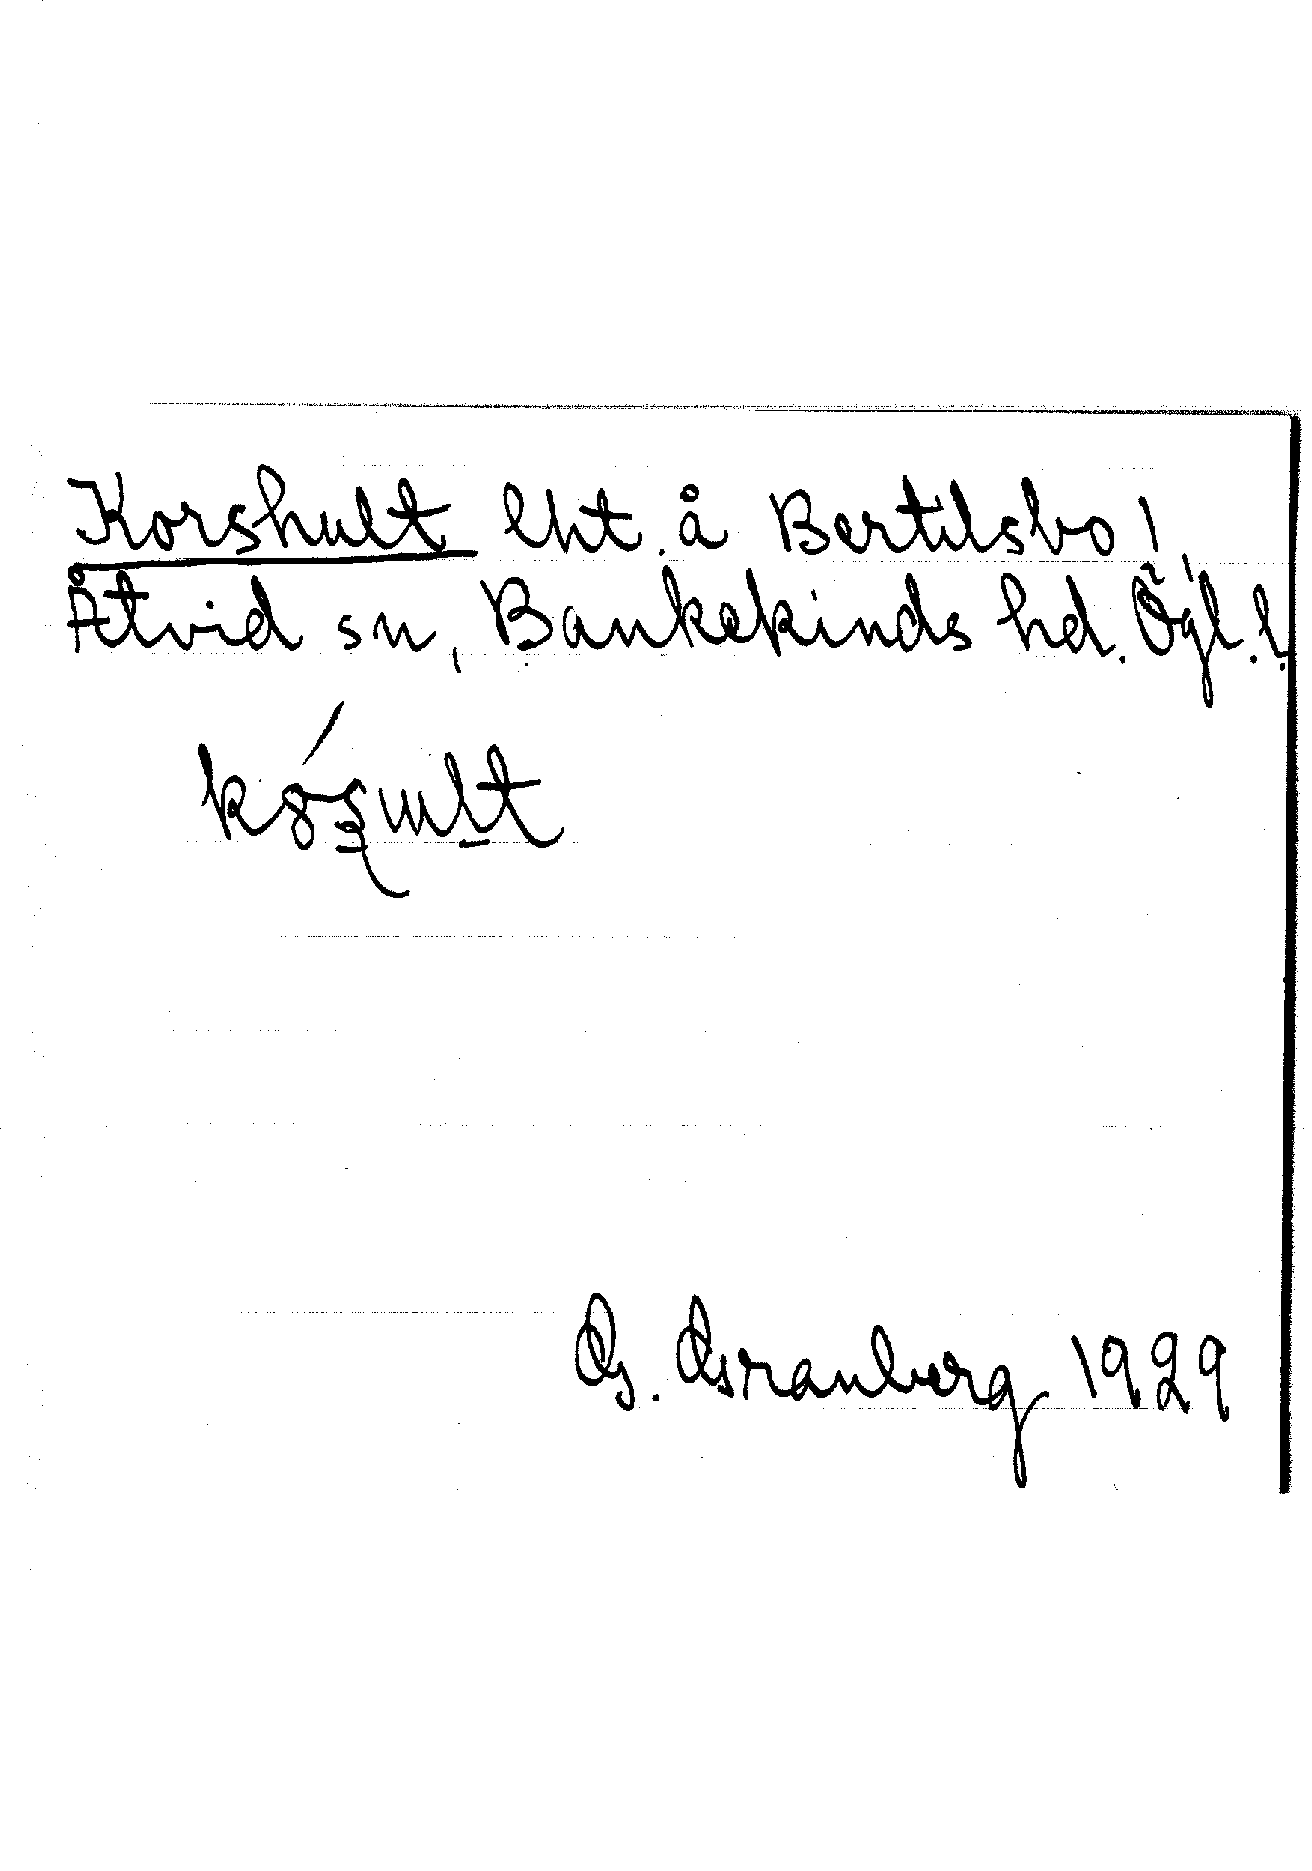 Korshult lht. å Bertilsbo,
Åtvid sn, Bankekinds hd. Ögl. l.
G. Granberg 1929